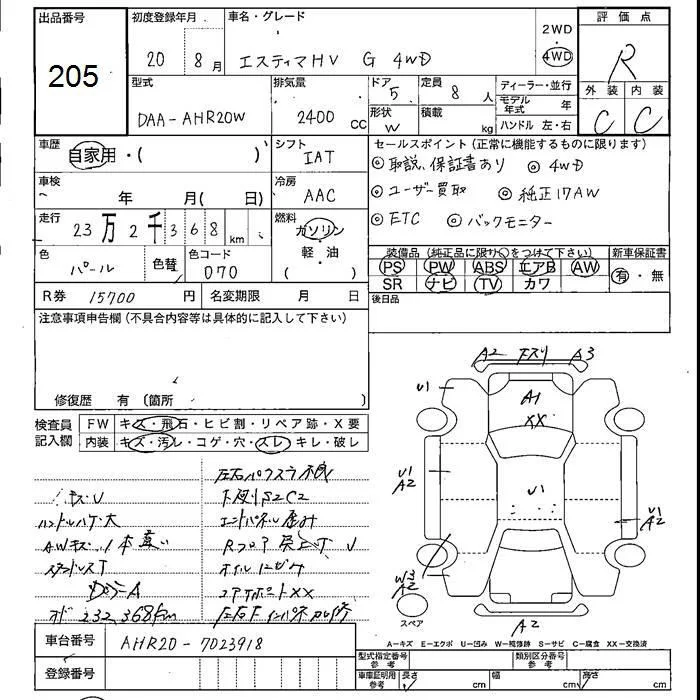 出品番号 初度登録年月 車名・グレード 2WD 評価点
205 20 8月 エスティマHV G 4WD 4WD R
型式 排気量 ドア 5 定員 8人 ディーラー・並行 外装 内装
DAA-AHR20W 2400 CC 形状 W 積載 kg モデル年式 年 C C
ハンドル 左・右
車歴 自家用・( ) シフト IAT セールスポイント(正常に機能するものに限ります)
◎取説、保証書あり ◎4WD
車検 年 月( 日) 冷房 AAC ◎ユーザー買取 ◎純正17AW
走行 23万2千368km 燃料 ガソリン ◎ETC ◎バックモニター
軽・油
( )
色 パール 色替 色コード 070 装備品(純正品に限り○をつけて下さい) 新車保証書
PS PW ABS エアB AW 有・無
R券 15700円 名変期限 月 日 SR ナビ TV カワ
注意事項申告欄(不具合内容等は具体的に記入して下さい) 後日品
修復歴 有(箇所
検査員 FW キズ・飛石・ヒビ割・リペア跡・X要
記入欄 内装 キズ・汚レ・コゲ・穴・スレ・キレ・破レ
A2 下スリ A3
U1
A1
XX
U1
A2
U1
U1
A2
W3
A2
スペア
A2
下廻りS2C2
ハンドルハゲ・大
AWキズ
オイルにじみ
コアサポートXX
232,368km
車台番号 AHR20-7023918
登録番号
A-キズ E-エクボ U-凹み W-補修跡 S-サビ C-腐食 XX-交換済
型式指定番号 参考 類別区分番号 参考
車庫証明用 参考 長さ cm 幅 cm 高さ cm